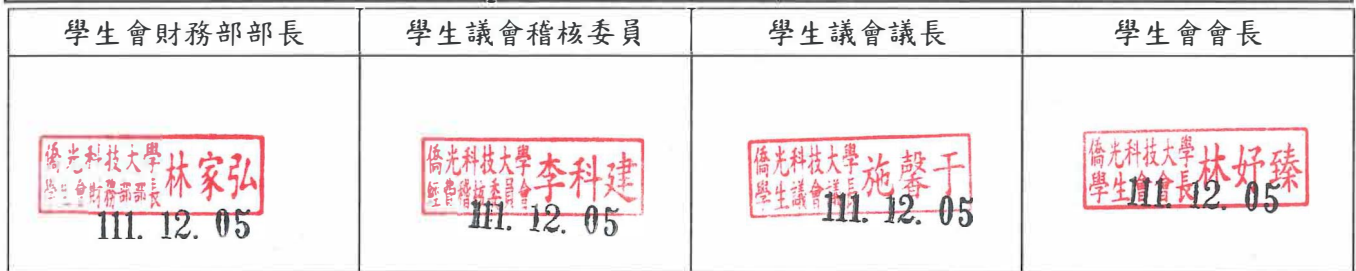 學生會財務部部長
學生議會稽核委員
學生議會議長
學生會會長
僑光科技大學
學生會財務部部長
林家弘
111. 12. 05
僑光科技大學
經費稽核委員會
李科建
111. 12. 05
僑光科技大學
學生議會議長
施馨于
111. 12. 05
僑光科技大學
學生會會長
林妤臻
111. 12. 05